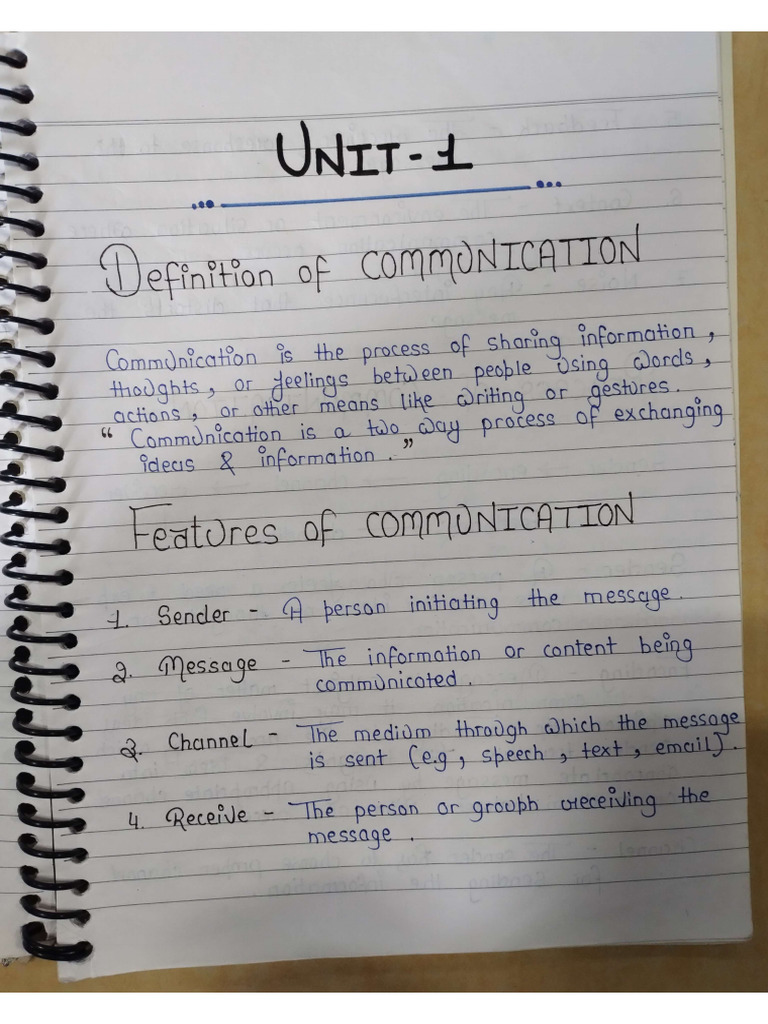 UNIT-1
Definition of COMMUNICATION
Communication is the process of sharing information,
thoughts, or feelings between people using words,
actions, or other means like writing or gestures.
" Communication is a two way process of exchanging
ideas & information."
Features of COMMUNICATION
1. Sender - A person initiating the message.
2. Message - The information or content being
communicated.
3. Channel - The medium through which the message
is sent (e.g, speech, text, email).
4. Receive - The person or group receiving the
message.